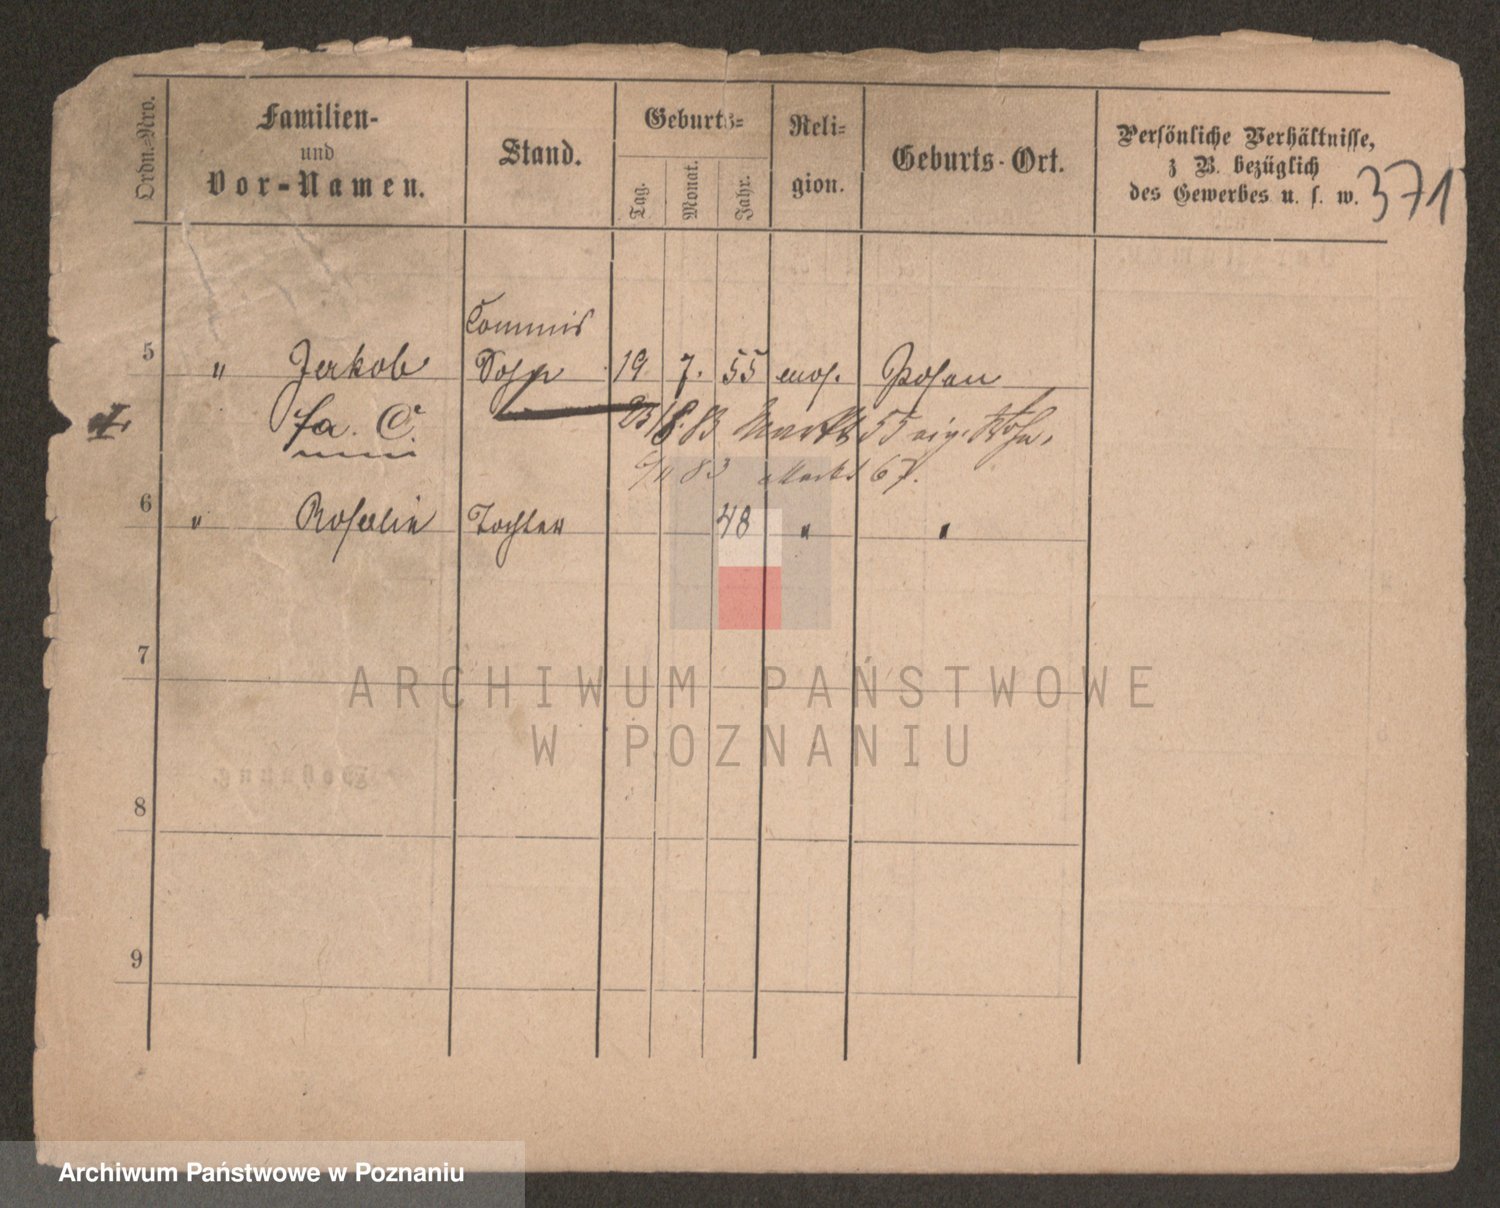 Ordn.-Nro.
Familien-
und
Vor-Namen.
Stand.
Geburts-
Tag.
Monat.
Jahr.
Reli-
gion.
Geburts-Ort.
Persönliche Verhältnisse,
z B. bezüglich
des Gewerbes u. s. w.
371
Commis
5 " Jakob Sohn 19 7. 55 mos. Posen
fa. C. 83 Markt 55 eig.
83 Markt 67.
6 " Rosalie Tochter 48 " "
7
8
9
ARCHIWUM PAŃSTWOWE
W POZNANIU
Archiwum Państwowe w Poznaniu